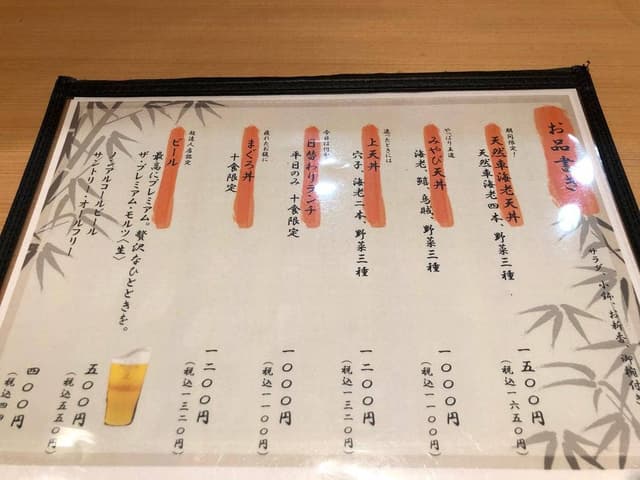 お品書き
サラダ、小鉢、お新香、御椀付き
期間限定！
天然車海老天丼
天然車海老四本、野菜三種
一五〇〇円
（税込一六五〇円）
やっぱり王道
みやび天丼
海老、鱚、烏賊、野菜三種
一〇〇〇円
（税込一一〇〇円）
迷ったときには
上天丼
穴子、海老二本、野菜三種
一二〇〇円
（税込一三二〇円）
今日は何か
日替わりランチ
平日のみ 十食限定
一〇〇〇円
（税込一一〇〇円）
疲れたお体に
まぐろ丼
十食限定
一二〇〇円
（税込一三二〇円）
超達人店認定
ビール
最高にプレミアム。贅沢なひとときを。
ザ・プレミアム・モルツ〈生〉
五〇〇円
（税込五五〇円）
ノンアルコールビール
サントリー・オールフリー
四〇〇円
（税込四四